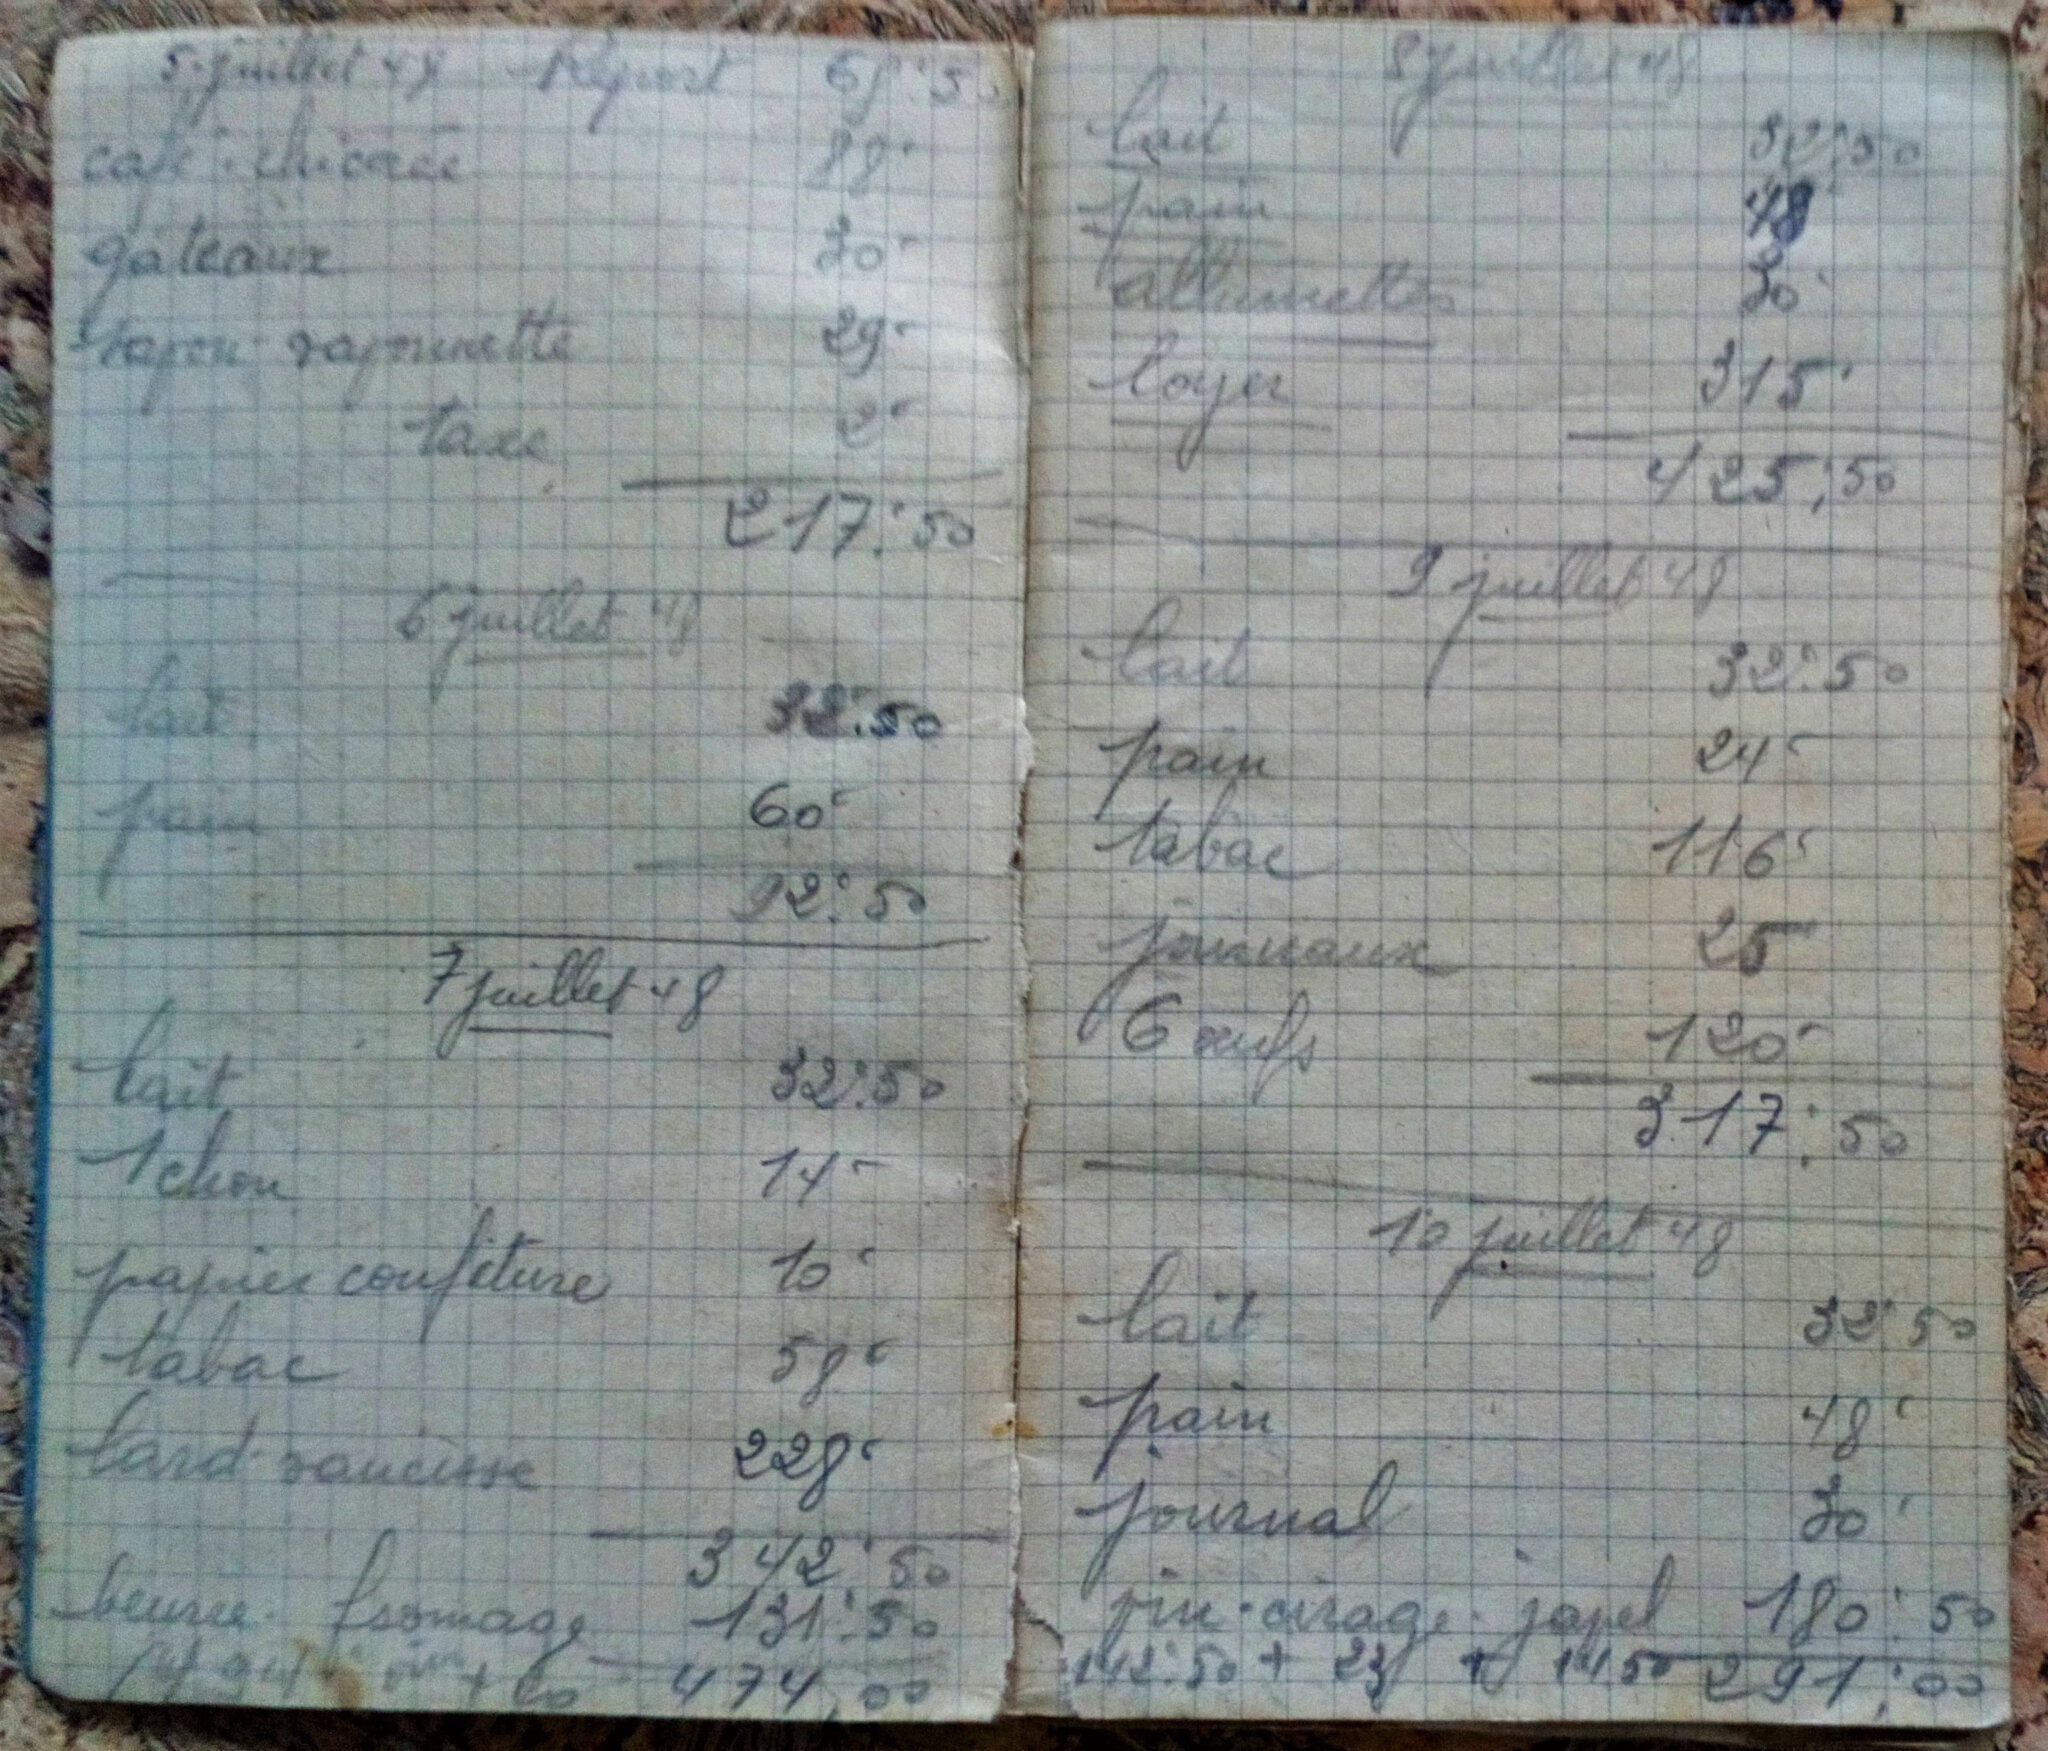 5 juillet 48 Report 68:50
café. chicorée 88
gâteaux 30
savon savonnette 29
taxe 2
217:50
6 juillet 48
lait 32:50
pain 60
92:50
7 juillet 48
lait 32:50
1 chou 14
papier confiture 10
tabac 58
lard. saucisse 228
342:50
beurre. fromage 131:50
474,00
8 juillet 48
lait 32:50
pain 48
allumettes 30
loyer 315
425,50
9 juillet 48
lait 32:50
pain 24
tabac 116
journaux 25
6 œufs 120
317:50
10 juillet 48
lait 32:50
pain 48
journal 30
vin. cirage. javel 180:50
142:50 + 23 + 14.50 291,00